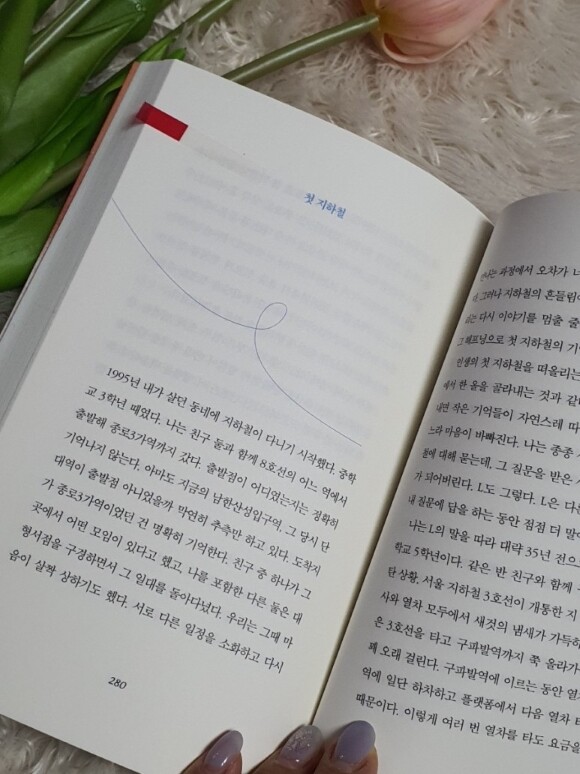 첫 지하철
1995년 내가 살던 동네에 지하철이 다니기 시작했다. 중학
교 3학년 때였다. 나는 친구 둘과 함께 8호선의 어느 역에서
출발해 종로3가역까지 갔다. 출발점이 어디였는지는 정확히
기억나지 않는다. 아마도 지금의 남한산성입구역, 그 당시 단
대역이 출발점 아니었을까 막연히 추측만 하고 있다. 도착지
가 종로3가역이었던 건 명확히 기억한다. 친구 중 하나가 그
곳에서 어떤 모임이 있다고 했고, 나를 포함한 다른 둘은 대
형서점을 구경하면서 그 일대를 돌아다녔다. 우리는 그때 마
음이 살짝 상하기도 했다. 서로 다른 일정을 소화하고 다시
280
과정에서 오차가
그러나 지하철의 흔들림이
다시 이야기를 멈출 줄
해프닝으로 첫 지하철의 기
인생의 첫 지하철을 떠올리는
에서 한 올을 골라내는 것과 같
내면 작은 기억들이 자연스레 따
느라 마음이 바빠진다. 나는 종종
철에 대해 묻는데, 그 질문을 받은
가 되어버린다. L도 그렇다. L은 다른
내 질문에 답을 하는 동안 점점 더 많이
나는 L의 말을 따라 대략 35년 전으
학교 5학년이다. 같은 반 친구와 함께
탄 상황. 서울 지하철 3호선이 개통한 지
사와 열차 모두에서 새것의 냄새가 가득하
은 3호선을 타고 구파발역까지 쭉 올라가
꽤 오래 걸린다. 구파발역에 이르는 동안 열차
역에 일단 하차하고 플랫폼에서 다음 열차
때문이다. 이렇게 여러 번 열차를 타도 요금을